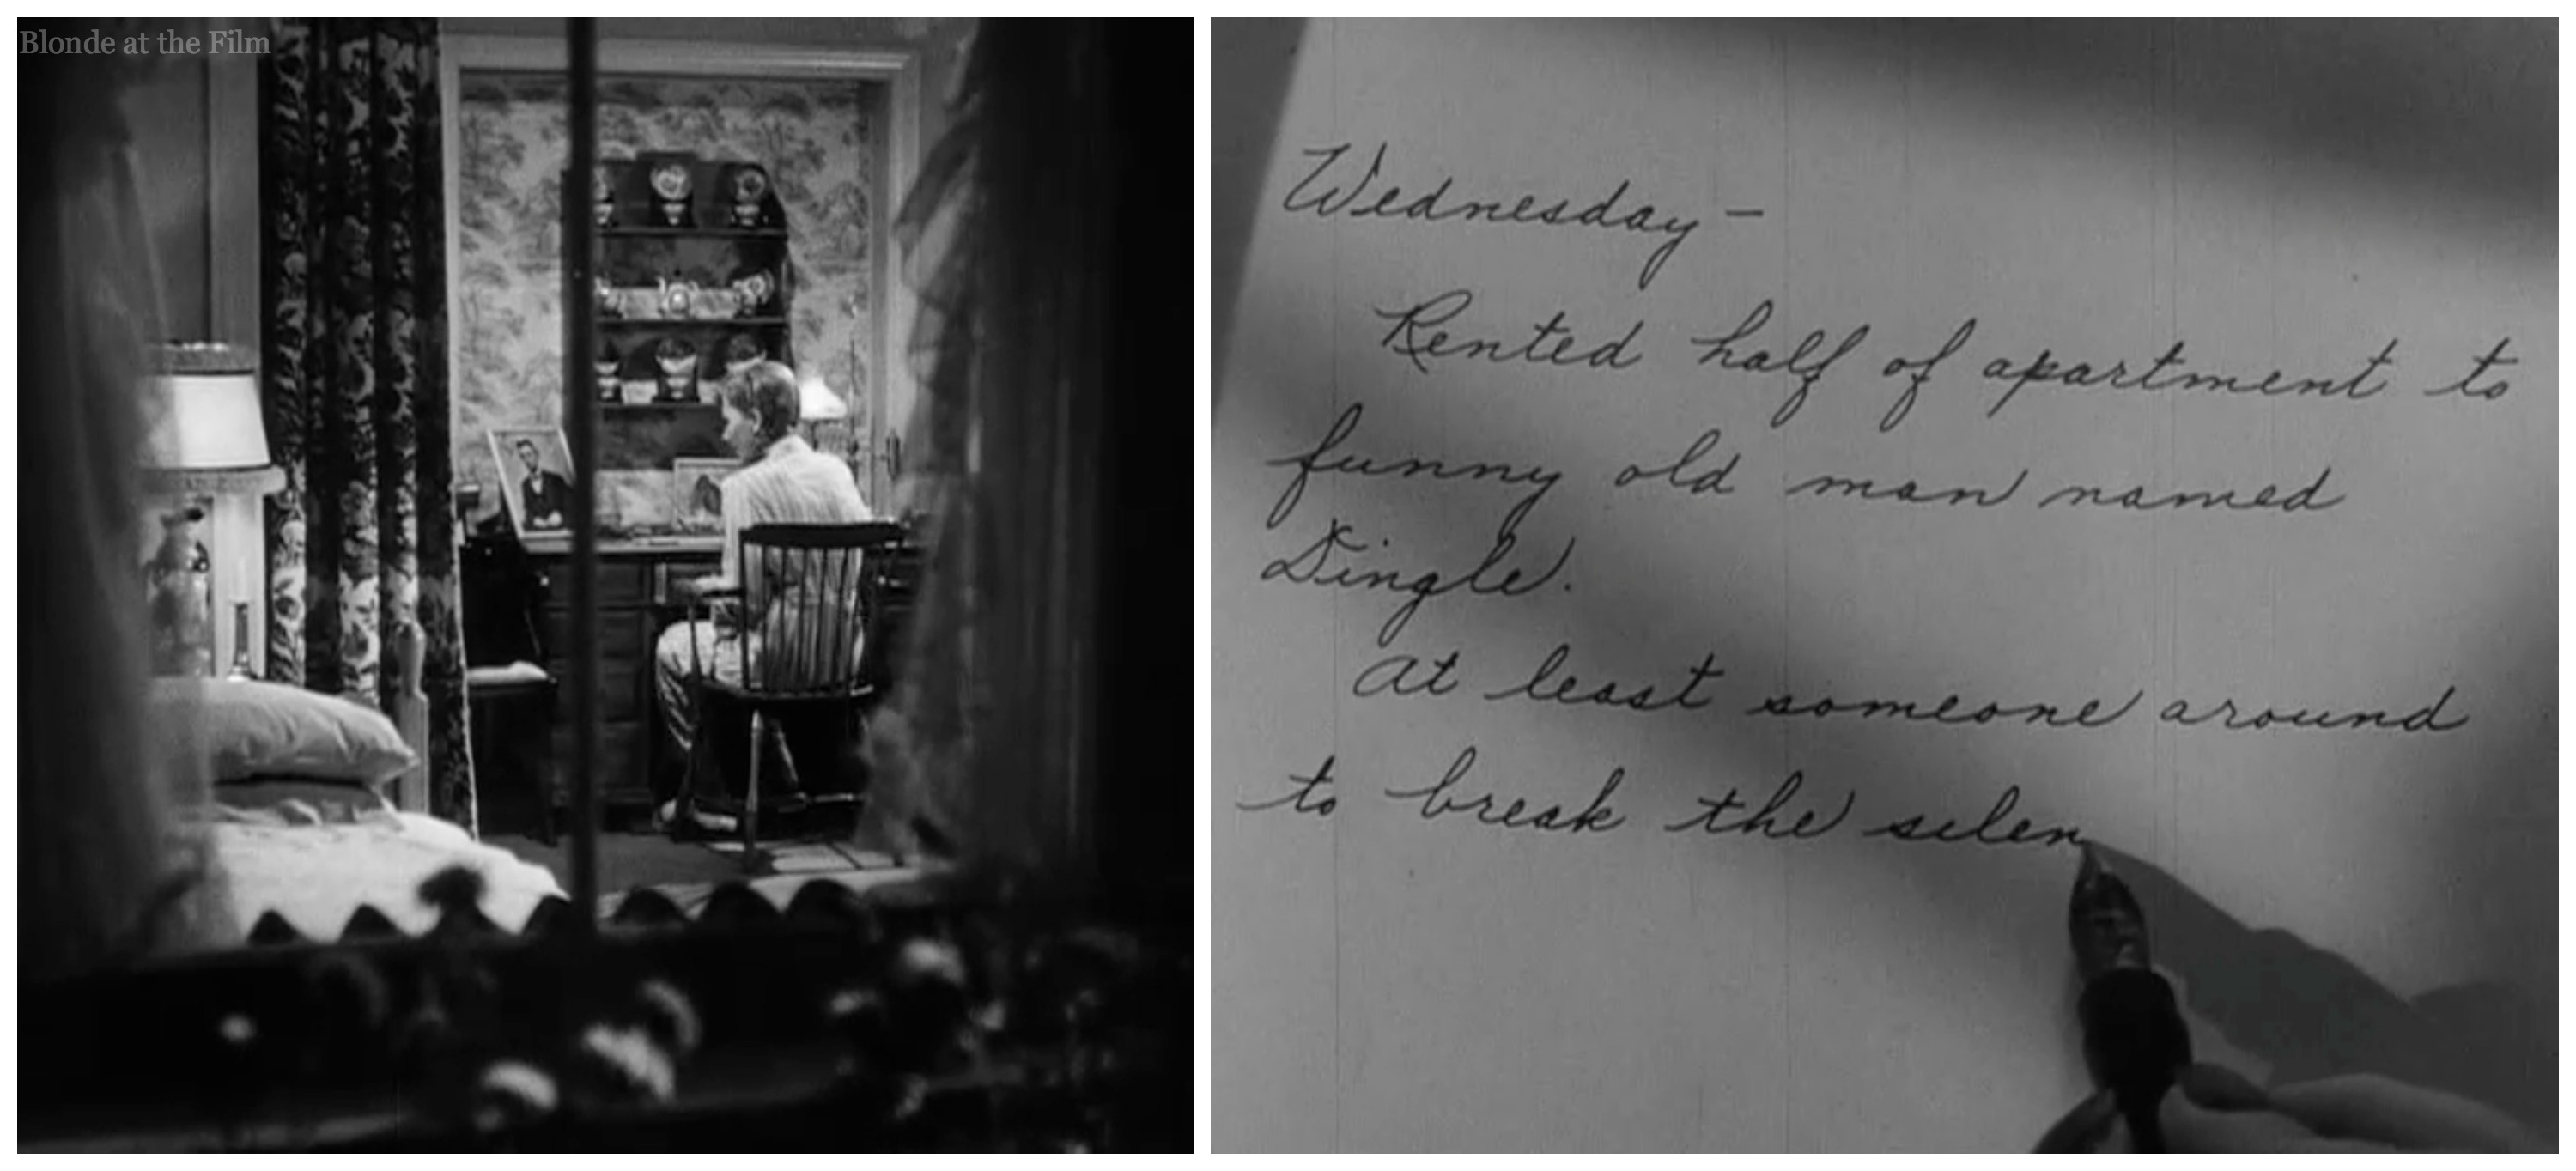 Blonde at the Film
Wednesday –
Rented half of apartment to
funny old man named
Dingle.
At least someone around
to break the silen